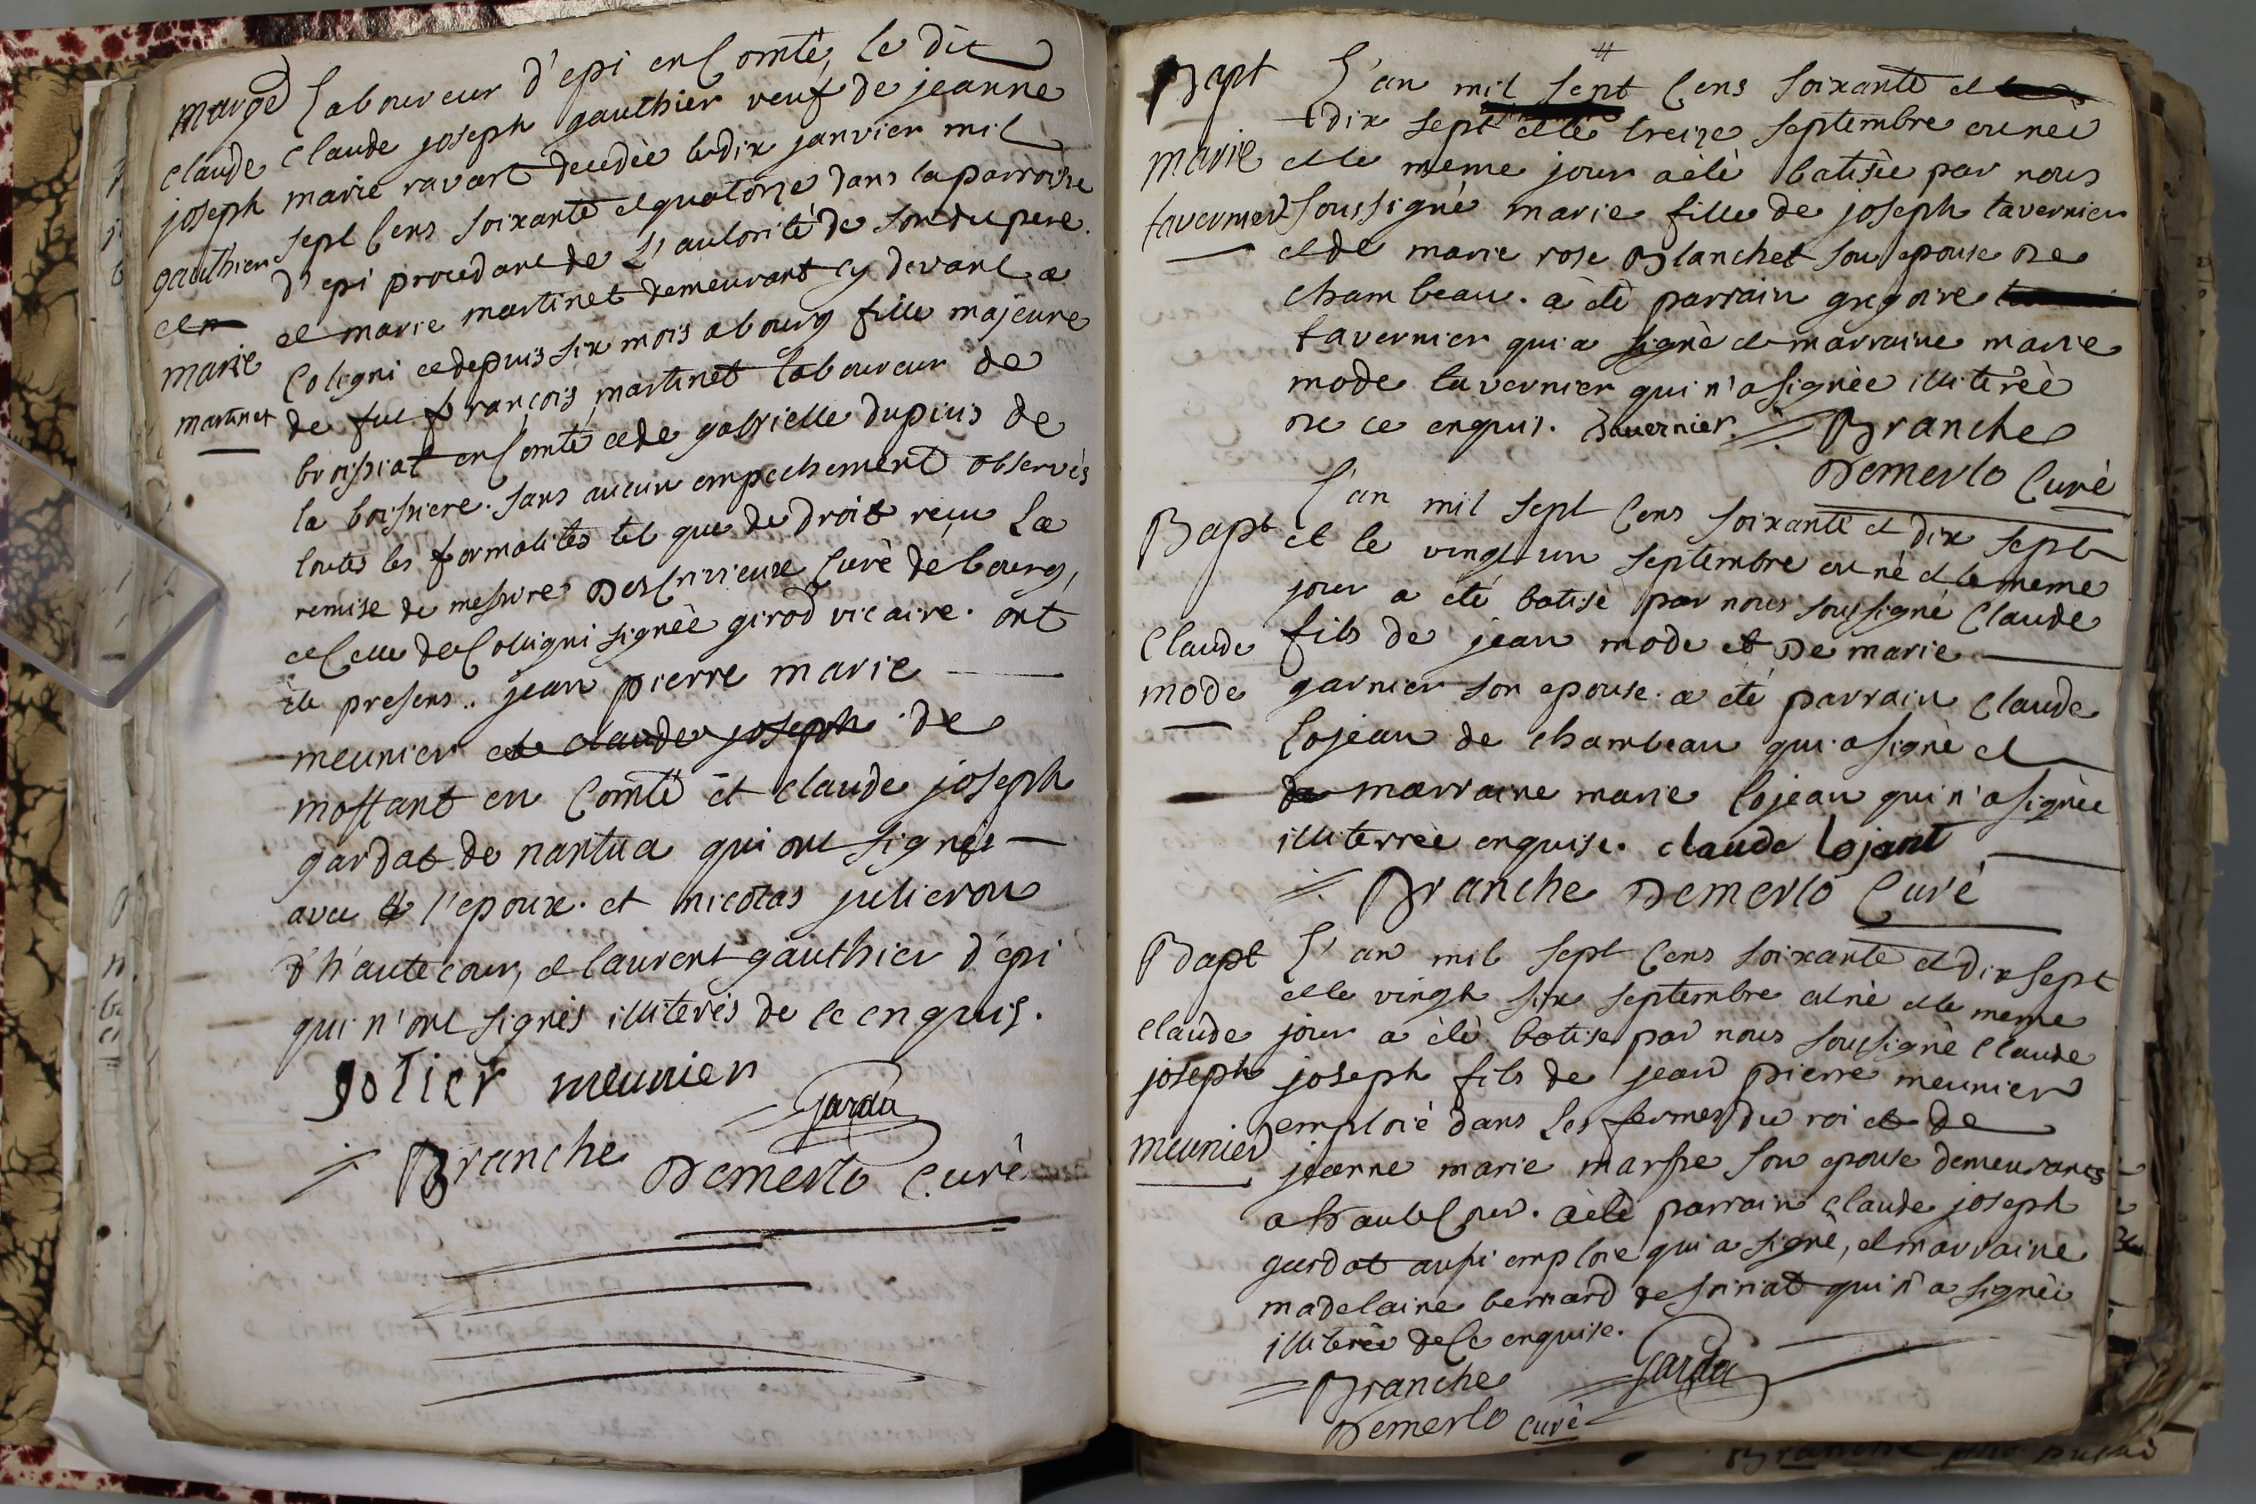 marge laboureur d'epi en Comté, le dit
claude claude joseph gauthier veuf de jeanne
joseph marie ravart decedée le dix janvier mil
gauthier sept Cens soixante et quatorze dans la parroisse
d'epi procedant de l'autorité de son du pere.
et marie martinet demeurant cy devant a
marie Coligni et depuis six mois a bourg fille majeure
martinet de fut françois martinet laboureur de
broissiat en Comté et de gabrielle dupuis de
la boissiere. sans aucun empechement observés
toutes les formalités tel que de droit reçu la
remise de messire curé de bourg,
et celle de Colligni signée girod vicaire. ont
été presens.. jean pierre marie
meunier et claude joseph de
en Comté et claude joseph
gardat de nantua qui ont signés
avec l'epoux. et nicolas julieron
d'hautecour, et laurent gauthier d'epi
qui n'ont signés illiterés de ce enquis.
Jolier meunier
garda
Branche Demerlo Curé
Bapt L'an mil sept Cens soixante et
dix sept et le treize septembre est née
marie et le meme jour a été batisée par nous
tavernier soussigné marie fille de joseph tavernier
et de marie rose Blanchet son epouse de
chambeau. a été parrain gregoire
tavernier qui a signé et marraine marie
mode tavernier qui n'a signée illiterée
de ce enquis. Tavernier. Branche
Demerlo Curé
L'an mil sept Cens soixante et dix sept
Bapt et le vingt un septembre est né et le meme
jour a eté batisé par nous soussigné Claude
Claude fils de jean mode et de marie
mode garnier son epouse. a eté parrain Claude
Lojean de chambeau qui a signé et
de marraine marie Lojean qui n'a signée
illiterrée enquise. claude lojant
Branche Demerlo Curé
Bapt L'an mil sept Cens soixante et dix sept
et le vingt six septembre est né et le meme
claude jour a été batisé par nous soussigné Claude
joseph joseph fils de jean pierre meunier
emploié dans les fermes du roi et de
meunier jeanne marie son epouse demeurants
a hautecour. a été parrain Claude joseph
gardat aussi emploié qui a signé, et marraine
madelaine bernard de qui n'a signée
illiterée de ce enquise.
Branche Garda
Demerlo curé